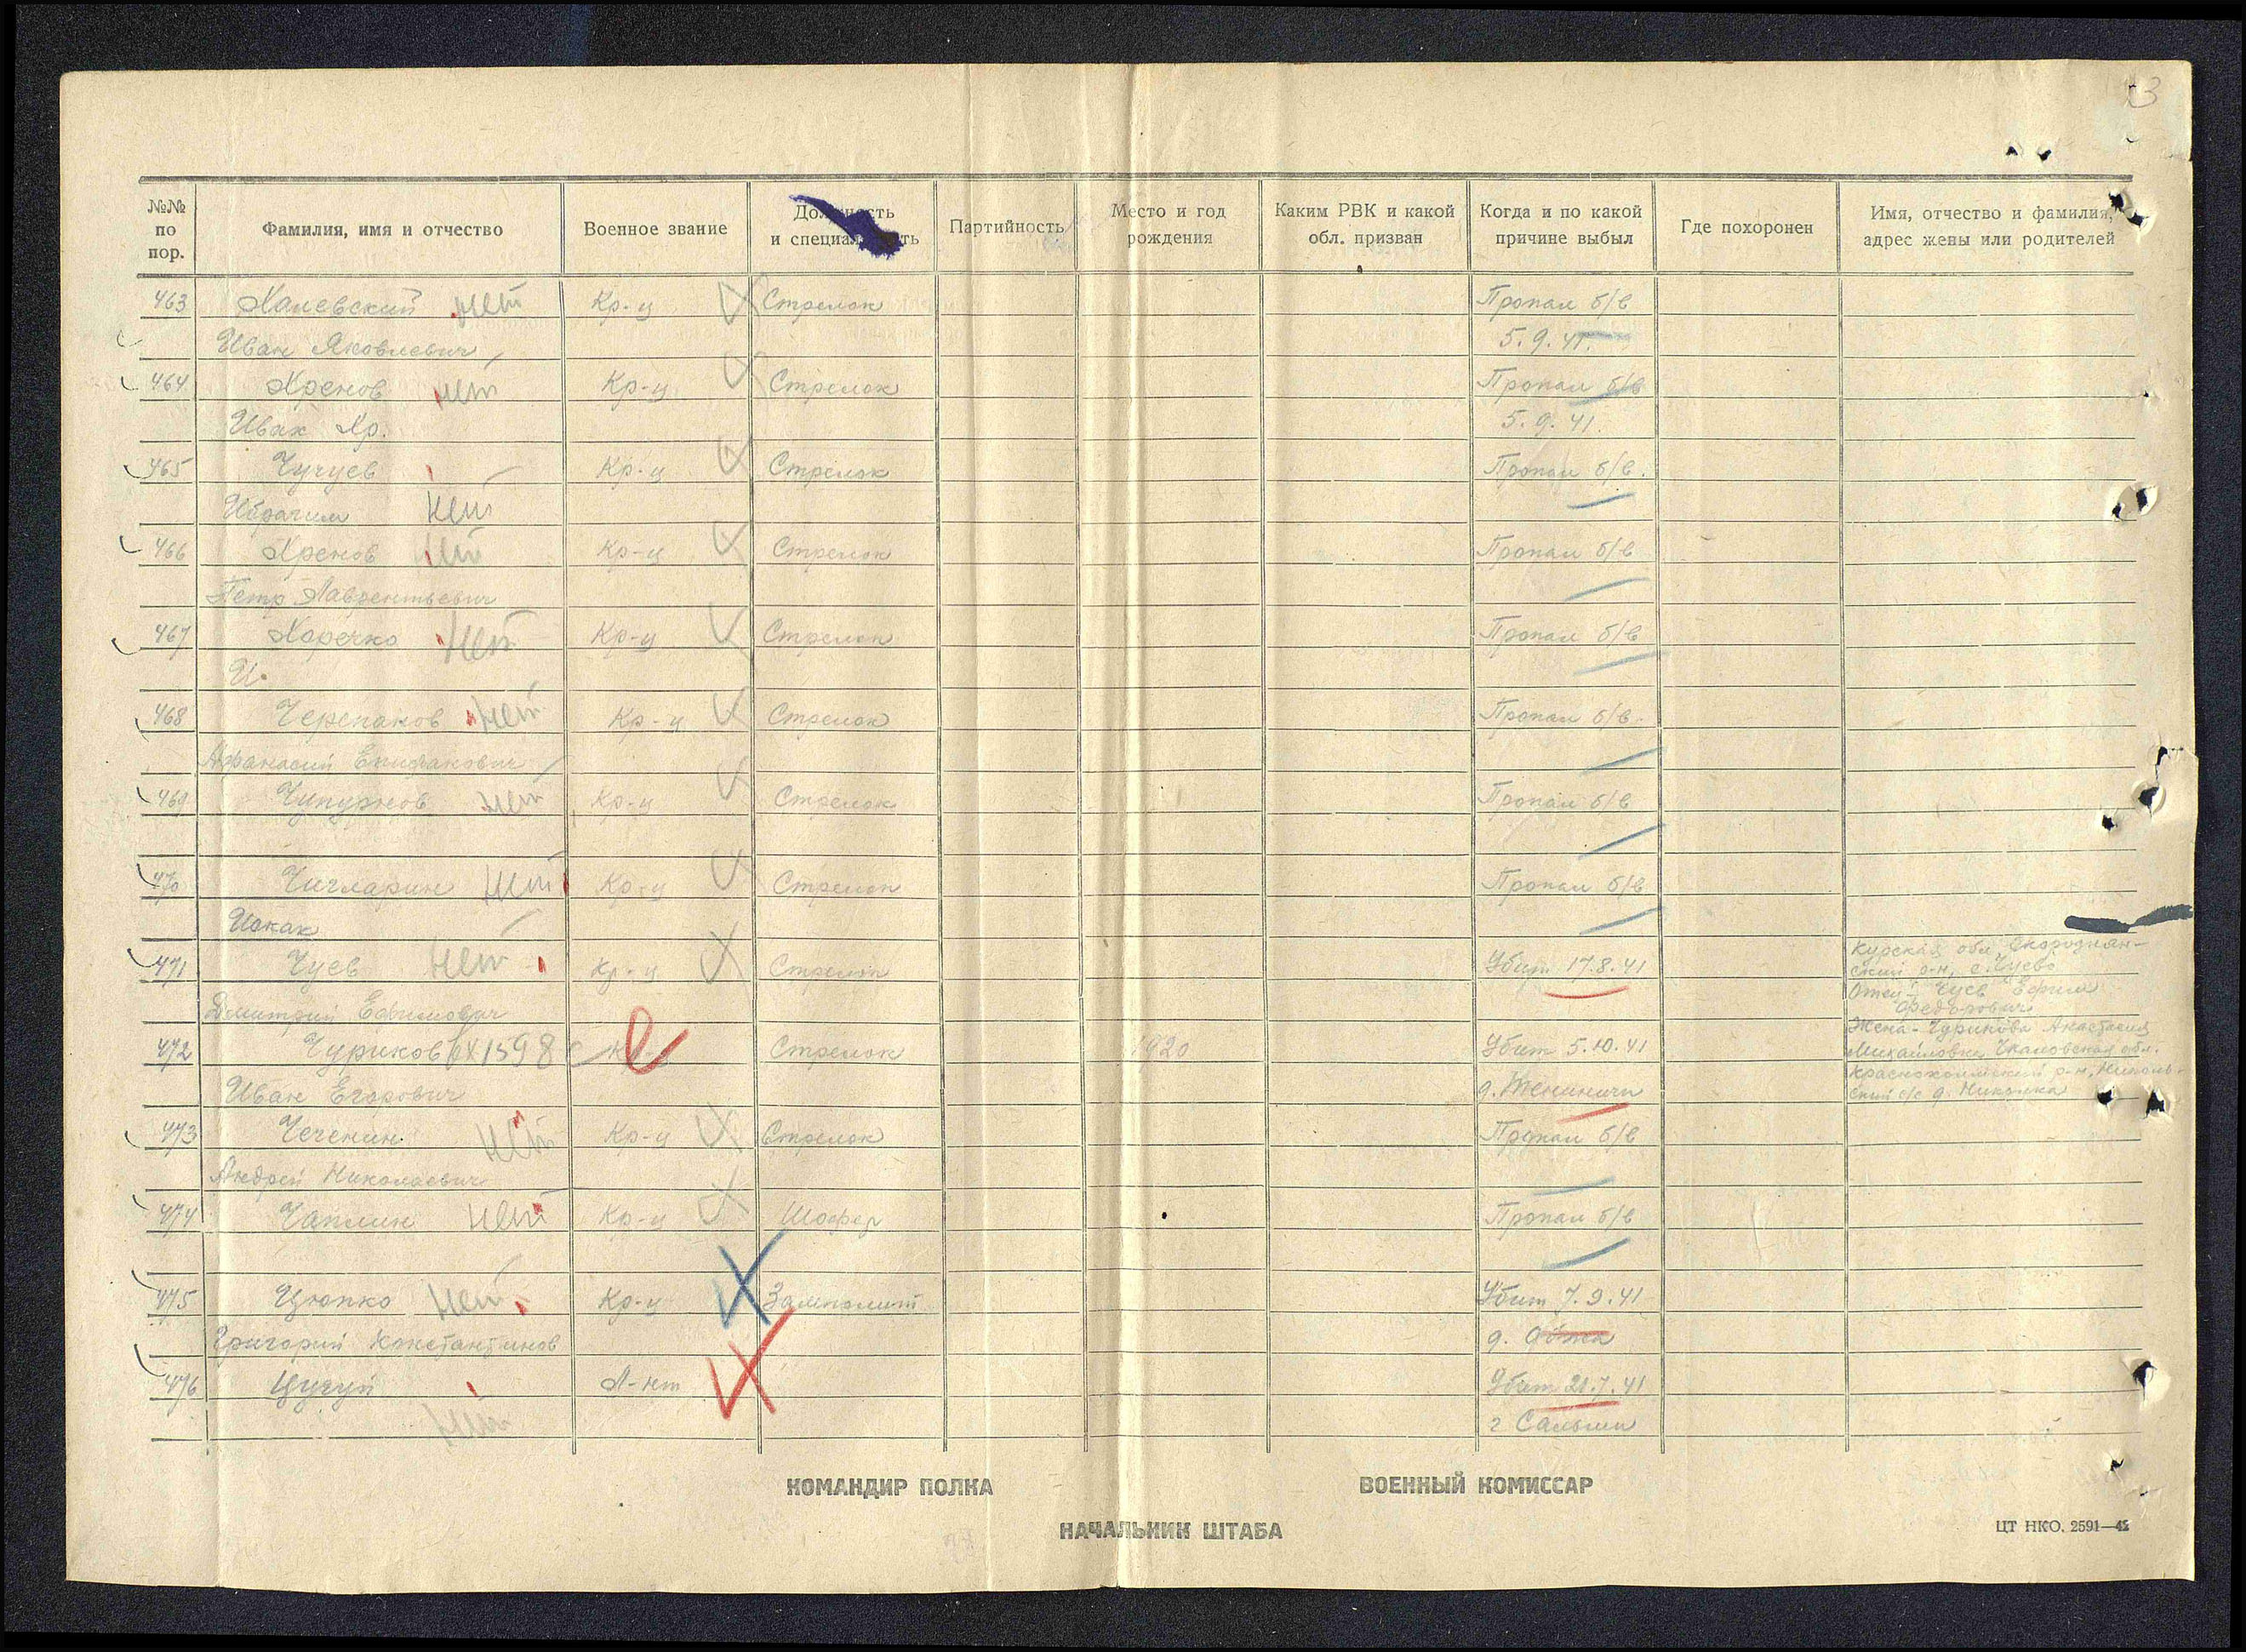 3
№№ по пор.
Фамилия, имя и отчество
Военное звание
Должность и специальность
Партийность
Место и год рождения
Каким РВК и какой обл. призван
Когда и по какой причине выбыл
Где похоронен
Имя, отчество и фамилия, адрес жены или родителей
463 Халевский нет Кр-ц Стрелок Пропал б/в
Иван Яковлевич 5.9.41.
464 Хренов нет Кр-ц Стрелок Пропал б/в
Иван 5.9.41.
465 Чучуев Кр-ц Стрелок Пропал б/в.
Ибрагим нет
466 Хренов нет Кр-ц Стрелок Пропал б/в
Петр Лаврентьевич
467 Харечко нет Кр-ц Стрелок Пропал б/в
И.
468 Черепанов нет Кр-ц Стрелок Пропал б/в
Афанасий Епифанович
469 нет Кр-ц Стрелок Пропал б/в
470 Чигларин нет Кр-ц Стрелок Пропал б/в
Искак
471 Чуев нет Кр-ц Стрелок Убит 17.8.41 Курская обл, Скороднян-
ский р-н, с. Чуево
Дмитрий Ефимович Отец - Чуев Ефим
Федорович
472 Чуриков Стрелок 1920 Убит 5.10.41 Жена - Чурикова Анастасия
Михайловна, Чкаловская обл.
Иван Егорович Краснохолмский р-н, Николь-
ский с/с д. Николка
473 Чеченин нет Кр-ц Стрелок Пропал б/в
Андрей Николаевич
474 Чаплин нет Кр-ц Шофер Пропал б/в
475 Цюпко нет Кр-ц Замполит Убит 7.9.41
Григорий Константинов д. Обжа
476 Цугуй Л-нт Убит 21.7.41
нет г Сальми
КОМАНДИР ПОЛКА
ВОЕННЫЙ КОМИССАР
НАЧАЛЬНИК ШТАБА
ЦТ НКО. 2591—42